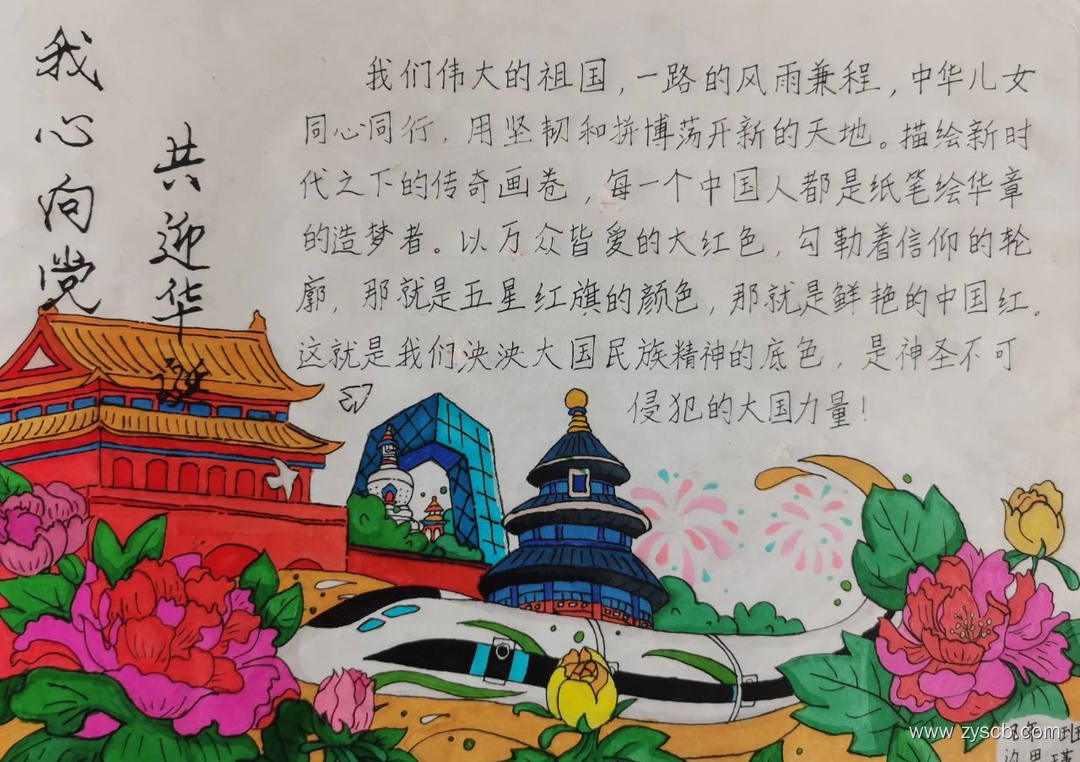 我心向党
共迎华诞
我们伟大的祖国，一路的风雨兼程，中华儿女
同心同行，用坚韧和拼博荡开新的天地。描绘新时
代之下的传奇画卷，每一个中国人都是纸笔绘华章
的造梦者。以万众皆爱的大红色，勾勒着信仰的轮
廓，那就是五星红旗的颜色，那就是鲜艳的中国红。
这就是我们泱泱大国民族精神的底色，是神圣不可
侵犯的大国力量！
www.zyscbj.com